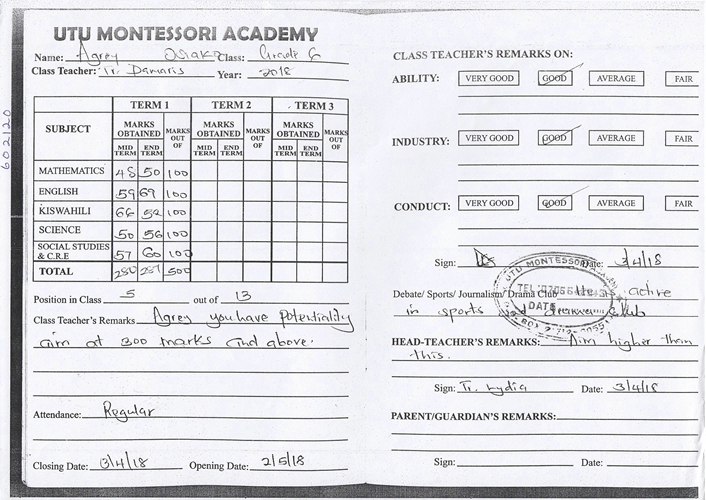 UTU MONTESSORI ACADEMY
Name: Agrey Class: Grade 6
Class Teacher: Tr. Damaris Year: 2018
SUBJECT TERM 1 TERM 2 TERM 3
MARKS OBTAINED MARKS OUT OF MARKS OBTAINED MARKS OUT OF MARKS OBTAINED MARKS OUT OF
MID TERM END TERM MID TERM END TERM MID TERM END TERM
MATHEMATICS 48 50 100
ENGLISH 59 69 100
KISWAHILI 66 52 100
SCIENCE 50 56 100
SOCIAL STUDIES & C.R.E 57 60 100
TOTAL 280 287 500
Position in Class 5 out of 13
Class Teacher's Remarks Agrey you have potentiality
aim at 300 marks and above.
Attendance: Regular
Closing Date: 3/4/18 Opening Date: 2/5/18
602120
CLASS TEACHER'S REMARKS ON:
ABILITY: VERY GOOD GOOD AVERAGE FAIR
INDUSTRY: VERY GOOD GOOD AVERAGE FAIR
CONDUCT: VERY GOOD GOOD AVERAGE FAIR
Sign: Date: 3/4/18
UTU MONTESSORI
TEL:
DATE
Debate/ Sports/ Journalism/ Drama Club active
in sports club
HEAD-TEACHER'S REMARKS: Aim higher than
this.
Sign: Tr. Lydia Date: 3/4/18
PARENT/GUARDIAN'S REMARKS:
Sign: Date: